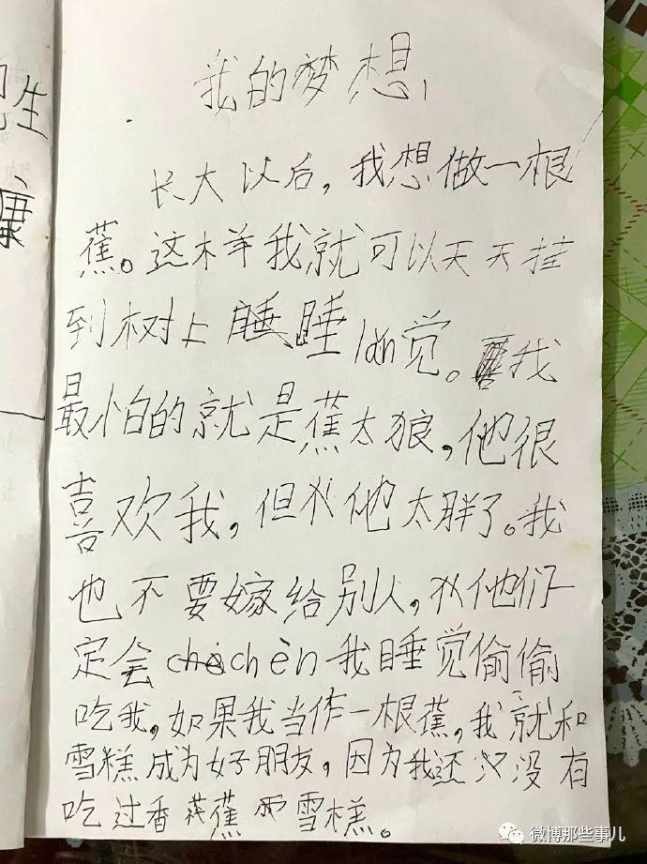 卫生
康
我的梦想
长大以后，我想做一根
蕉。这木羊我就可以天天挂
到树上 睡睡lǎn觉。我
最怕的就是蕉太狼，他很
喜欢我，但 他太胖了。我
也不要嫁给别人，他们一
定会 chèn我睡觉偷偷
吃我，如果我当作一根蕉，我就和
雪糕成为好朋友，因为我还没有
吃过香蕉 雪糕。
微博那些事儿